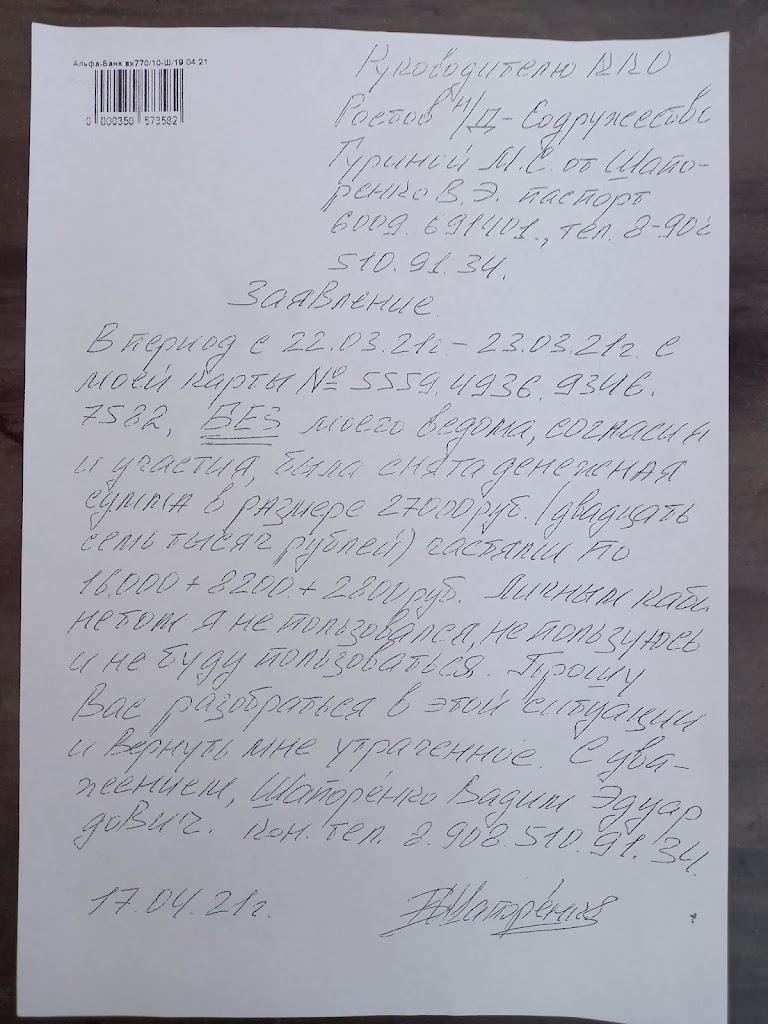 Альфа-Банк вх770/10-Ш/19.04.21
0 000350 573582
Руководителю ККО
Ростов н/Д-Содружество
Гуриной М.С. от Шапо-
ренко В.Э. паспорт
6009. 691401., тел. 8-908
510.91.34.
Заявление
В период с 22.03.21г. – 23.03.21г. с
моей карты № 5559.4936.9346.
7582, БЕЗ моего ведома, согласия
и участия, была снята денежная
сумма в размере 27000руб. (двадцать
семь тысяч рублей) частями по
16.000 + 8200 + 2800руб. Личным каби
нетом я не пользовался, не пользуюсь
и не буду пользоваться. Прошу
Вас разобраться в этой ситуации
и вернуть мне утраченное. С ува-
жением, Шапоренко Вадим Эдуар
дович. кон. тел. 8.908.510.91.34.
17.04.21г.
Шапоренко